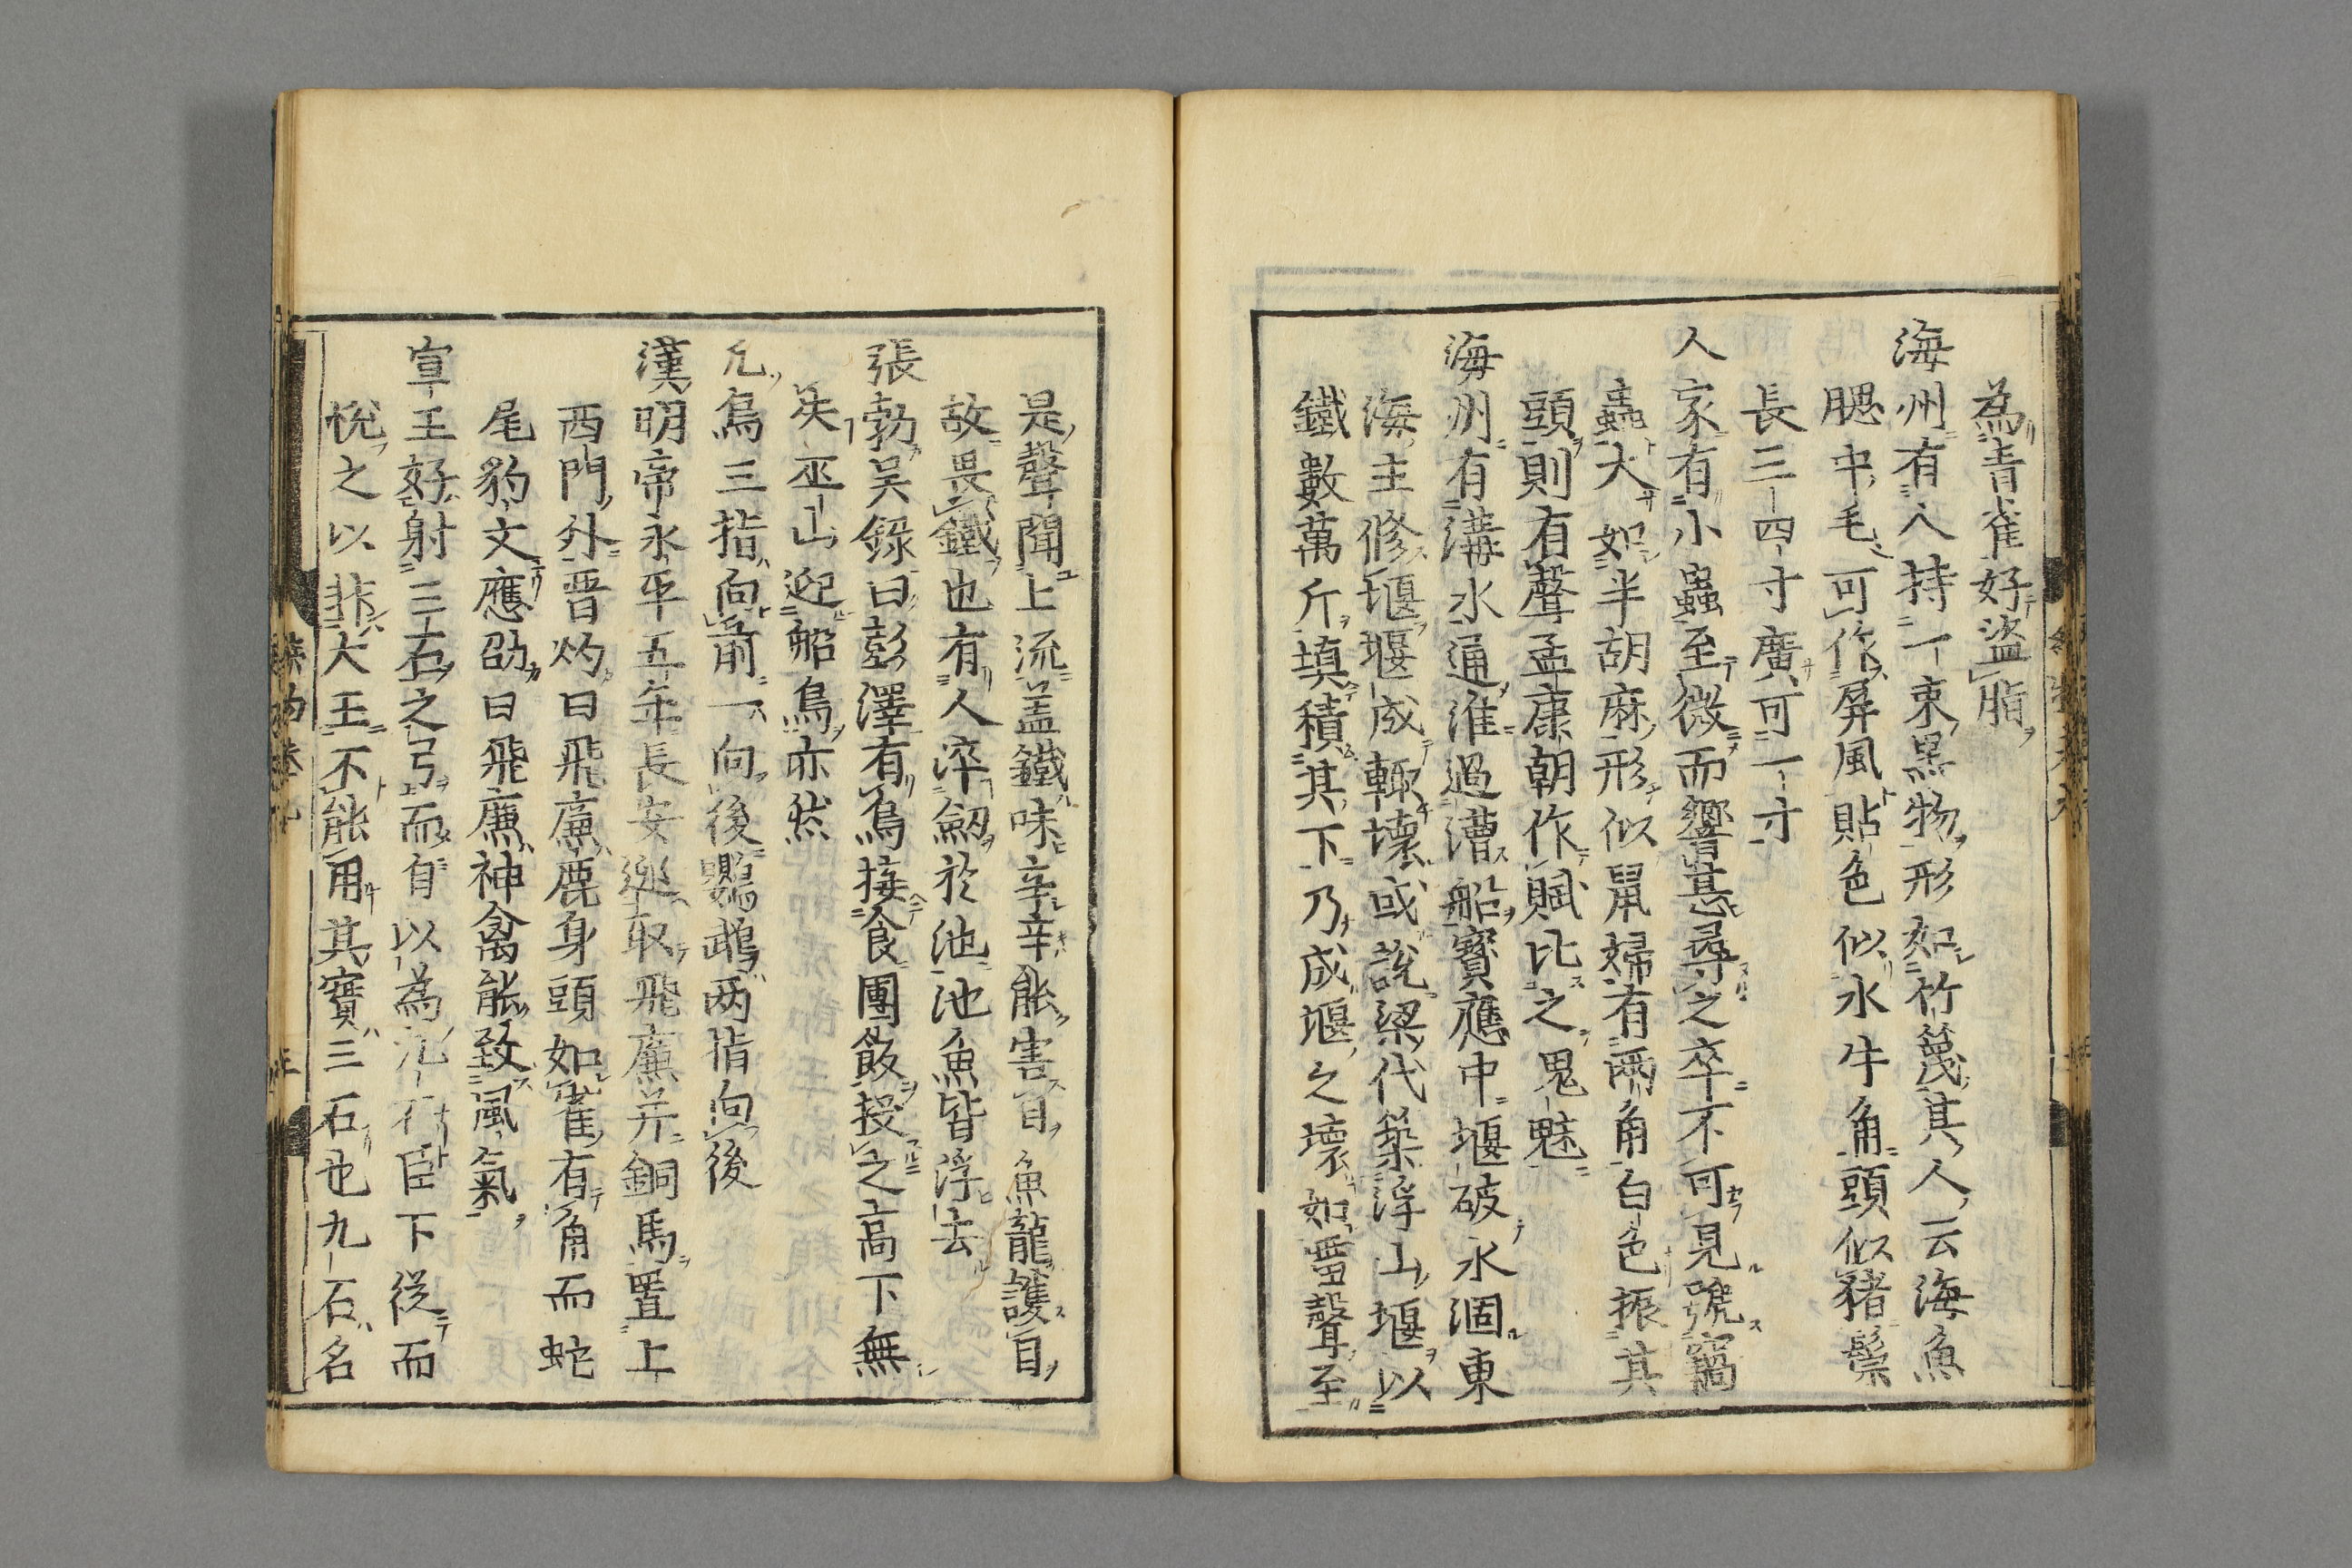 為青雀好盜脂
海州有人持一束黒物形如竹篾其人云海魚
腮中毛可作屏風貼色似水牛角頭似猪鬃
長三四寸廣可一寸
人家有小蟲至微而響甚尋之卒不可見號竊
蟲大如半胡麻形似鼠婦有兩角白色振其
頭則有聲孟康朝作賦比之鬼魅
海州有溝水通淮過漕船寳應中堰破水涸東
海主修堰堰成輙壊或說梁代築浮山堰以
鐵數萬斤填積其下乃成堰之壊如雷聲至
是聲聞上流盖鐵味辛辛能害目魚龍護目
故畏鐵也有人淬劒於池池魚皆浮去
張勃吴錄曰彭澤有鳥接食團飯投之高下無
失巫山迎船鳥亦然
凢鳥三指向前一向後鸚鵡两指向後
漢明帝永平五年長安迎取飛廉并銅馬置上
西門外晋灼曰飛廉鹿身頭如雀有角而蛇
尾豹文應劭曰飛廉神禽能致風氣
宣王好射三石之弓而自以為九石臣下從而
悅之以非大王不能用其實三石也九石名